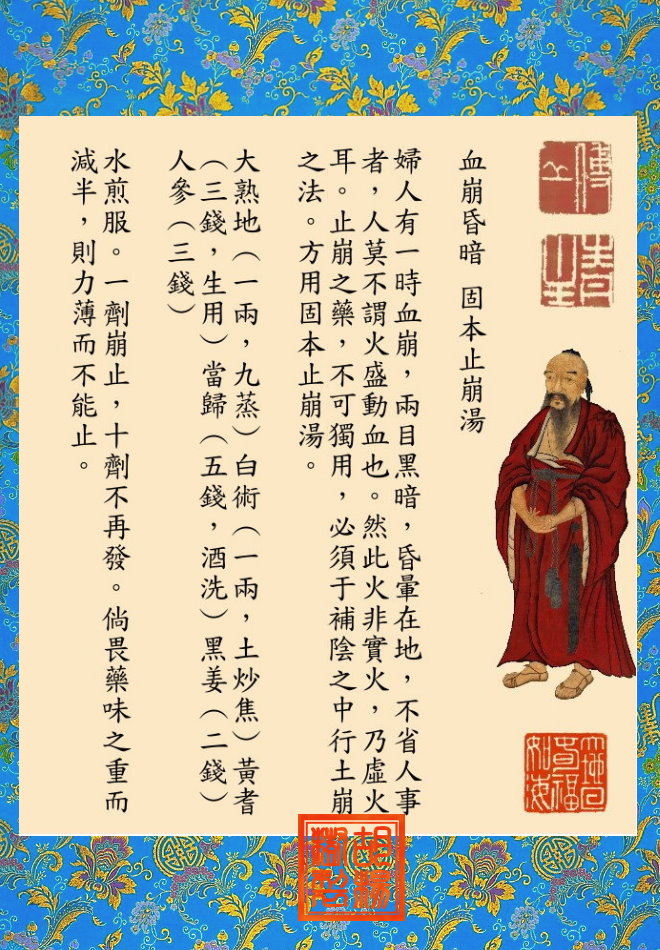 傅山
血崩昏暗 固本止崩湯
婦人有一時血崩，兩目黑暗，昏暈在地，不省人事
者，人莫不謂火盛動血也。然此火非實火，乃虛火
耳。止崩之藥，不可獨用，必須于補陰之中行土崩
之法。方用固本止崩湯。
大熟地（一兩，九蒸）白術（一兩，土炒焦）黃耆
（三錢，生用）當歸（五錢，酒洗）黑姜（二錢）
人參（三錢）
水煎服。一劑崩止，十劑不再發。倘畏藥味之重而
減半，則力薄而不能止。